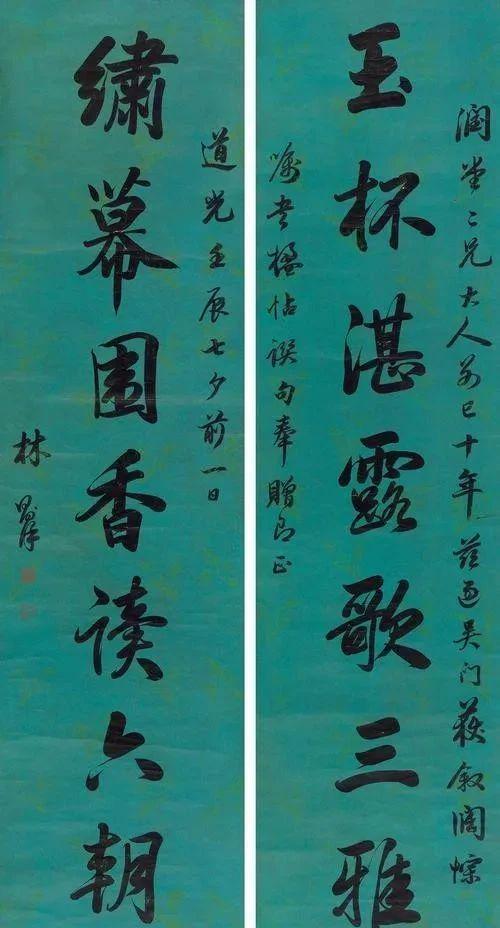 潤堂二兄大人别已十年茲過吳门获敘濶悰
玉杯湛露歌三雅
嘱書楹帖譔句奉贈即正
道光壬辰七夕前一日
繡幕圍香讀六朝
林則徐